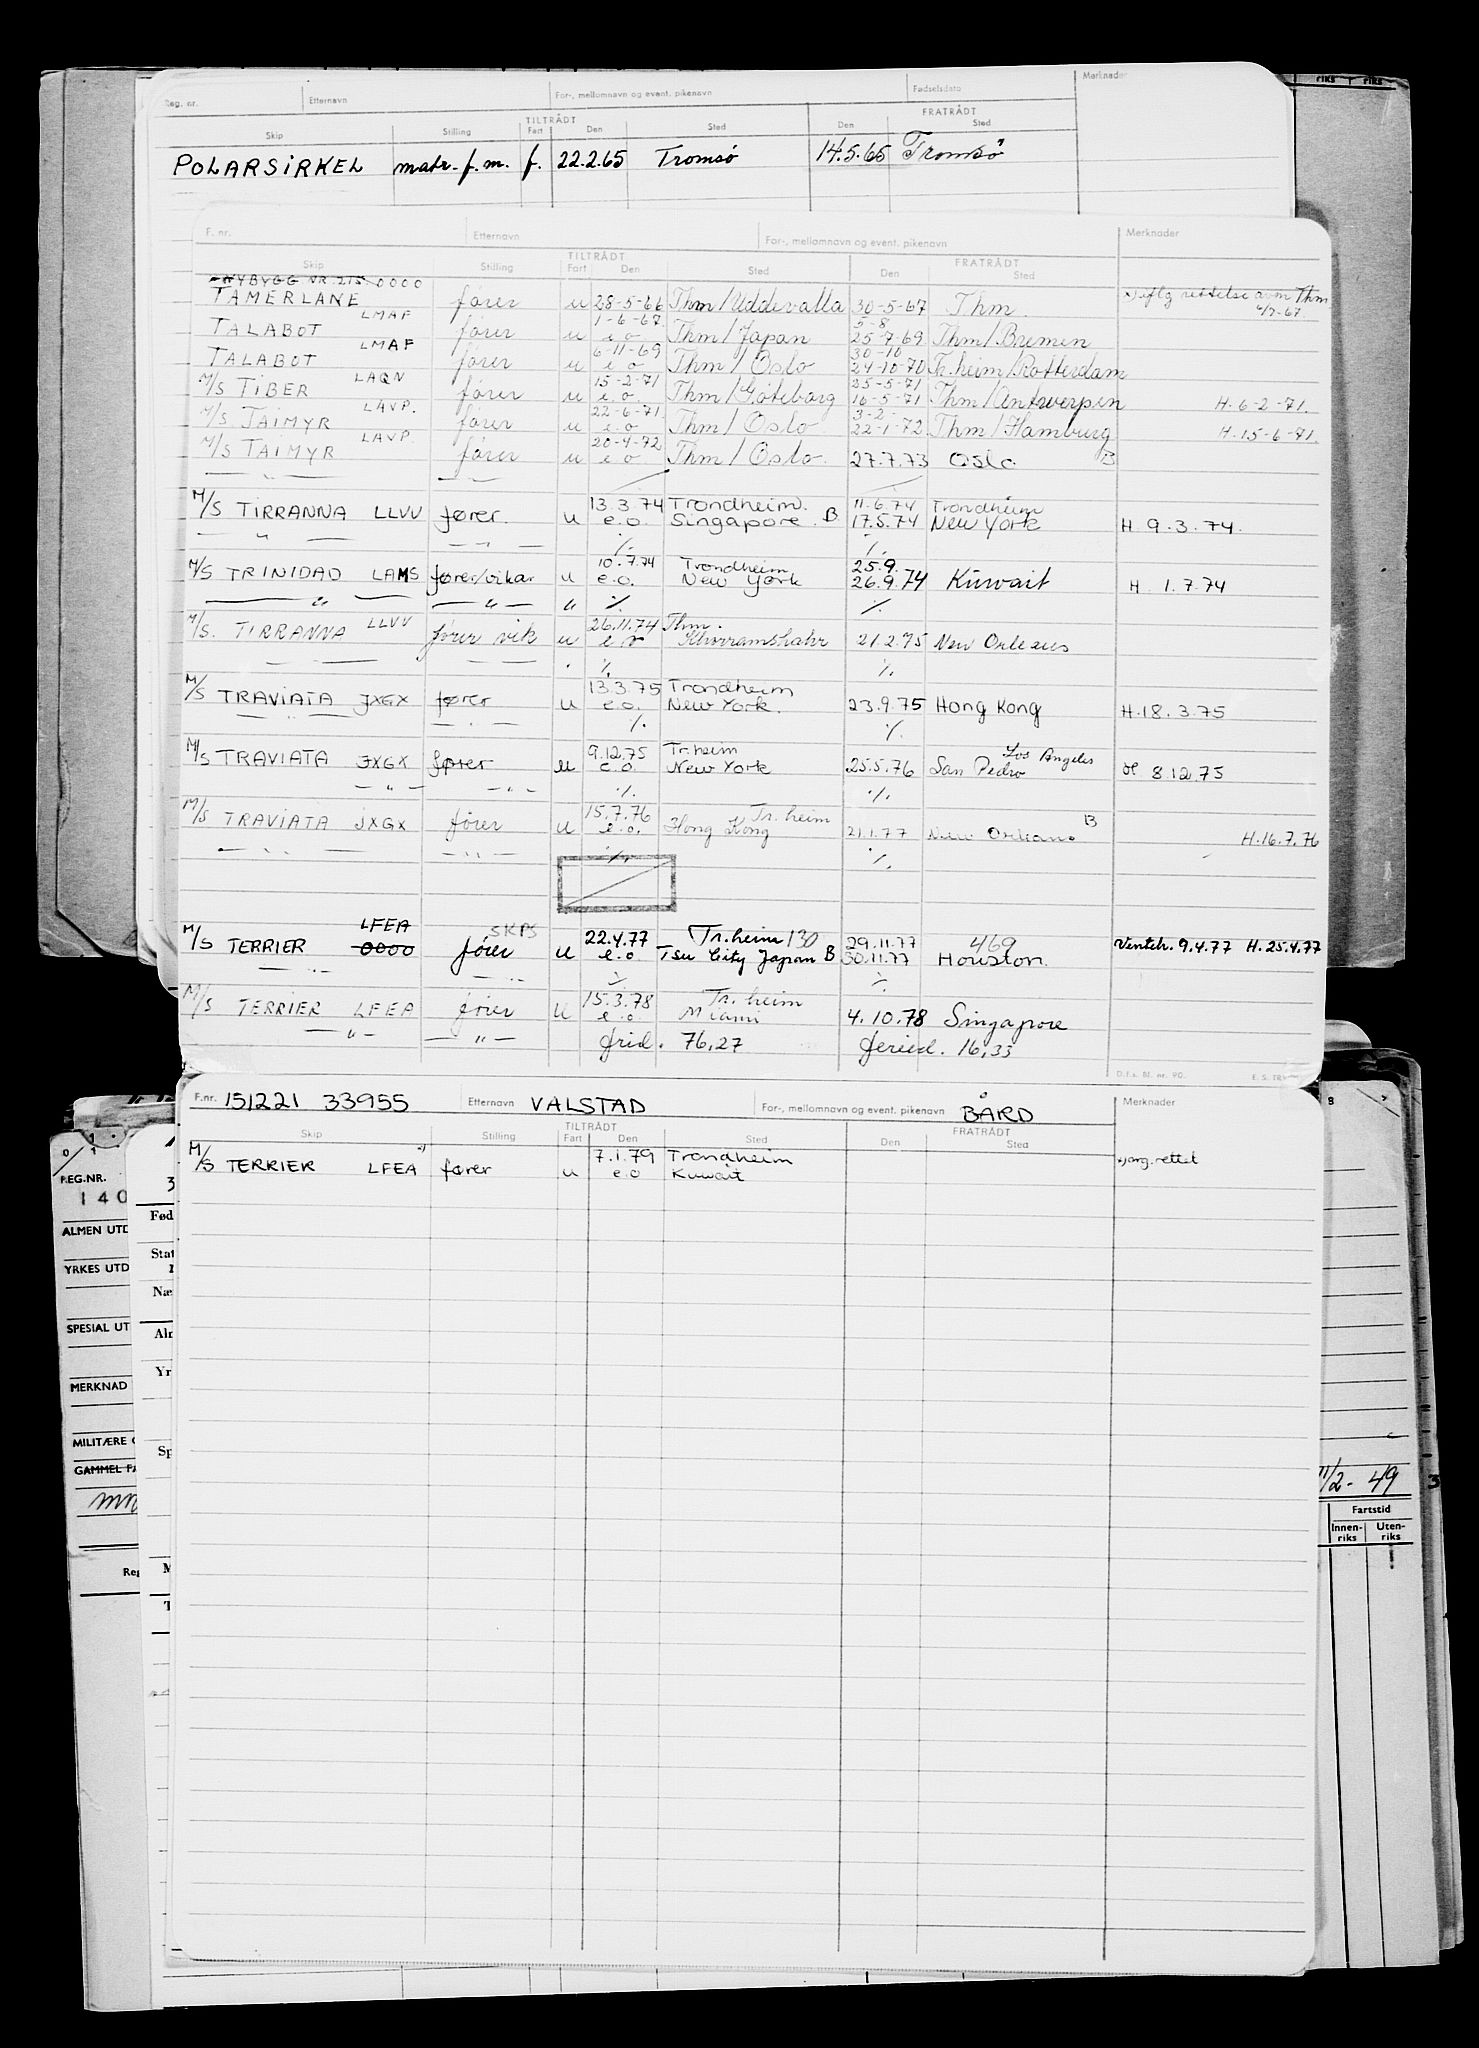 Reg. nr. Etternavn For-, mellomnavn og event. pikenavn Fødselsdato Merknader
TILTRÅDT FRATRÅDT
Skip Stilling Fart Den Sted Den Sted
POLARSIRKEL matr.f.m. f. 22.2.65 Tromsø 14.5.65 Tromsø
F. nr. Etternavn For-, mellomnavn og event. pikenavn Merknader
TILTRÅDT FRATRÅDT
Skip Stilling Fart Den Sted Den Sted
NYBYGG NR. 215. 0000
TAMERLANE fører u 28-5-66 Thm/Uddevalla 30-5-67 Thm. x) iflg rettelse avm Thm
LMAF 1-6-67 5-8 6/7-67.
TALABOT fører u e o Thm/Japan 25-7-69 Thm/Bremen
LMAF 6-11-69 30-10
TALABOT fører u e o Thm/Oslo 24-10-70 Tr.heim/Rotterdam
LAQN 15-2-71 25-5-71
M/S TIBER fører u e.o. Thm/Gøteborg 16-5-71 Thm/Antwerpen H. 6-2-71.
LAVP. 22-6-71 3-2-
M/S TAIMYR fører u e.o Thm/Oslo 22-1-72 Thm/Hamburg H. 15-6-71.
LAVP. 20-4-72
M/S TAIMYR fører u e o Thm/Oslo. 27.7.73 Oslo B
— " — — " —
13.3.74 Trondheim. 11.6.74 Trondheim
M/S TIRRANNA LLVV fører. u e.o. Singapore. B 17.5.74 New York H. 9.3.74.
— " — — " — ./. ./.
10.7.74 Trondheim 25.9.
M/S TRINIDAD LAMS fører/vikar u e.o. New York 26.9.74 Kuwait H. 1.7.74
— " — — " — " ./. ./.
LLVV 26.11.74 Thm.
M/S. TIRRANNA fører vik u e o Khorramshahr 21.2.75 New Orleans
— " — — " — ./. ./.
13.3.75 Trondheim
M/S TRAVIATA JXGX fører u e.o. New York. 23.9.75 Hong Kong H.18.3.75
— " — — " — ./. ./.
9.12.75 Tr.heim Los Angeles
M/S TRAVIATA JXGX fører u e.o. New York 25.5.76 San Pedro H 8.12.75
— " — — " — ./. ./.
15.7.76 Tr.heim
M/S TRAVIATA JXGX fører u e.o. Hong Kong 21.1.77 New Orleans B H.16.7.76
— " — — " — ./. ./.
LFEA SKPS 22.4.77 Tr.heim 130 29.11.77 469
M/S TERRIER 0000 fører u e.o Tsu City Japan B 30.11.77 Houston. Ventch. 9.4.77 H. 25.4.77
— " — — " — ./. ./.
15.3.78 Tr.heim
M/S TERRIER LFEA fører u e.o Miami 4.10.78 Singapore
— " — — " — frid. 76,27 feried. 16,33
D.f.s. Bl. nr. 90.
F.nr. 151221 33955 Etternavn VALSTAD For-, mellomnavn og event. pikenavn BÅRD Merknader
TILTRÅDT FRATRÅDT
Skip Stilling Fart Den Sted Den Sted
x) 7.1.79 Trondheim
M/S TERRIER LFEA fører u e.o Kuwait x) arg. rettet
REG.NR.
140
ALMEN UTD
YRKES UTD
SPECIAL UT
MERKNAD
MILITÆRE
GAMMEL FA
Fød
Stat
Næ
Alr
Yr
Sp
Reg
M
T
11/2-49
Fartstid
Innen-riks Uten-riks